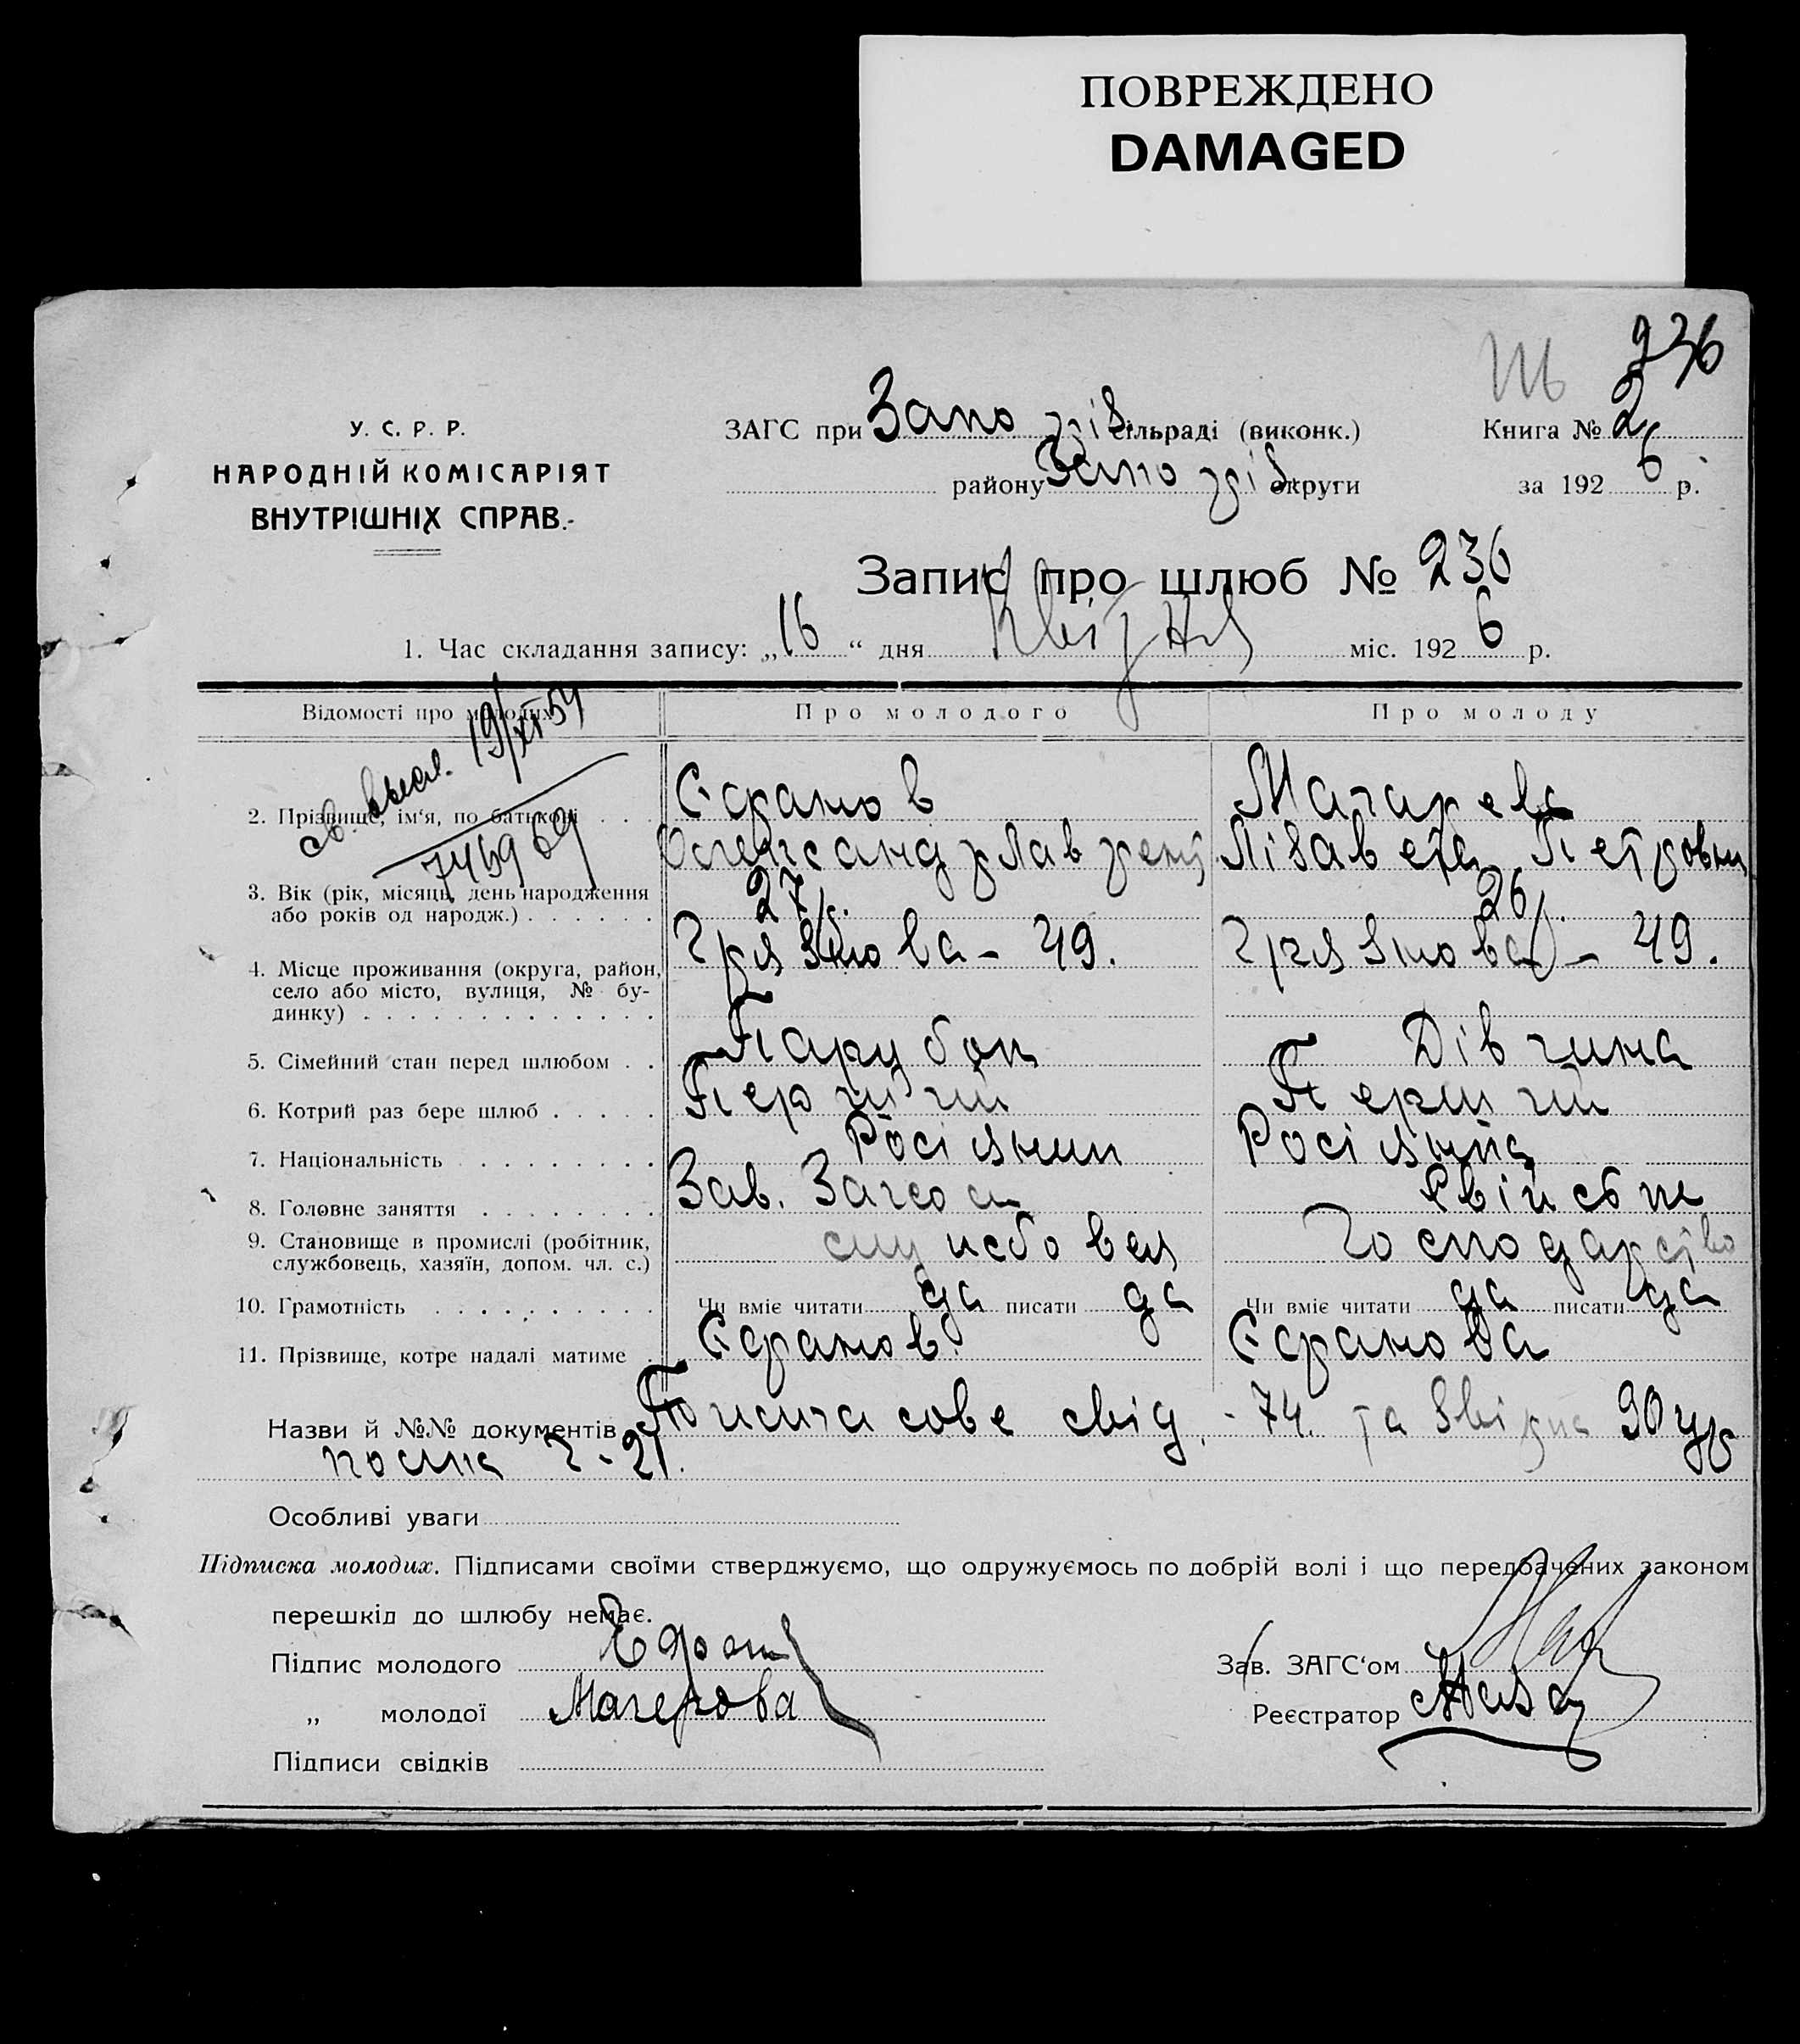 ПОВРЕЖДЕНО
DAMAGED
236
У. С. Р. Р.
НАРОДНІЙ КОМІСАРІЯТ
ВНУТРІШНІХ СПРАВ.
ЗАГС при Запорів. сільраді (виконк.)
Книга № 2
району Запорів округи
за 1926 р.
Запис про шлюб № 236
1. Час складання запису: „16“ дня Квітня міс. 1926 р.
Відомості про молодих
Про молодого
Про молоду
19/XI 54
2. Прізвище, ім‘я, по батькові
Єфрамов
Олександр Лаврент
Лізавета Петровна
3. Вік (рік, місяць, день народження або років од народж.)
27 р.
26 р.
4. Місце проживання (округа, район, село або місто, вулиця, № будинку)
Грязнова - 49.
Грязнова - 49.
5. Сімейний стан перед шлюбом
Парубок
Дівчина
6. Котрий раз бере шлюб
Перший
Перший
7. Національність
Росіянин
Росіянка
8. Головне заняття
Зав. Загсом
Свійське
9. Становище в промислі (робітник, службовець, хазяїн, допом. чл. с.)
службовец
господарство
10. Грамотність
Чи вміє читати да писати да
Чи вміє читати да писати да
11. Прізвище, котре надалі матиме
Єфрамов
Єфрамова
Назви й №№ документів
свід. - 74. та
Особливі уваги
Підписка молодих. Підписами своїми стверджуємо, що одружуємось по добрій волі і що передбачених законом
перешкід до шлюбу немає.
Підпис молодого
Зав. ЗАГС‘ом
„ молодої
Реєстратор
Підписи свідків